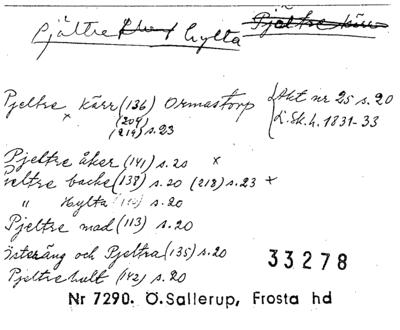 Pjältre hylta
Pjeltre kärr (136) Ormastorp {Akt nr 25 s.20
(204)
(219) s.23
L.Sk.h. 1831-33
Pjeltre åker (141) s.20 x
Pjeltre backe (138) s.20 (218) s.23 x
" Hylta s.20
Pjeltre mad (113) s.20
Österäng och Pjeltra (135) s.20
Pjeltrehult (142) s.20
33278
Nr 7290. Ö.Sallerup, Frosta hd